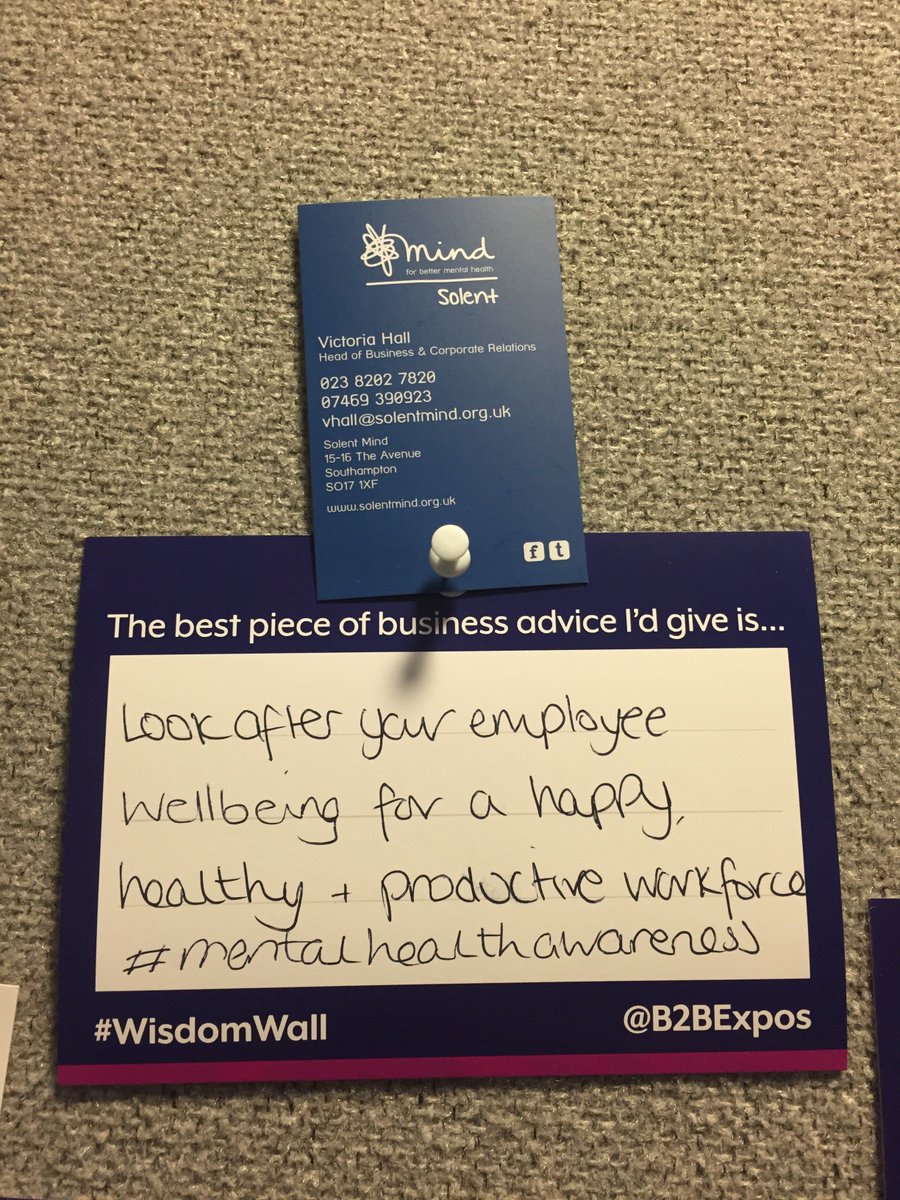 mind
for better mental health
Solent
Victoria Hall
Head of Business & Corporate Relations
023 8202 7820
07469 390923
vhall@solentmind.org.uk
Solent Mind
15-16 The Avenue
Southampton
SO17 1XF
www.solentmind.org.uk
f t
The best piece of business advice I'd give is...
Look after your employee
wellbeing for a happy,
healthy + productive workforce
#mentalhealthawareness
#WisdomWall @B2BExpos